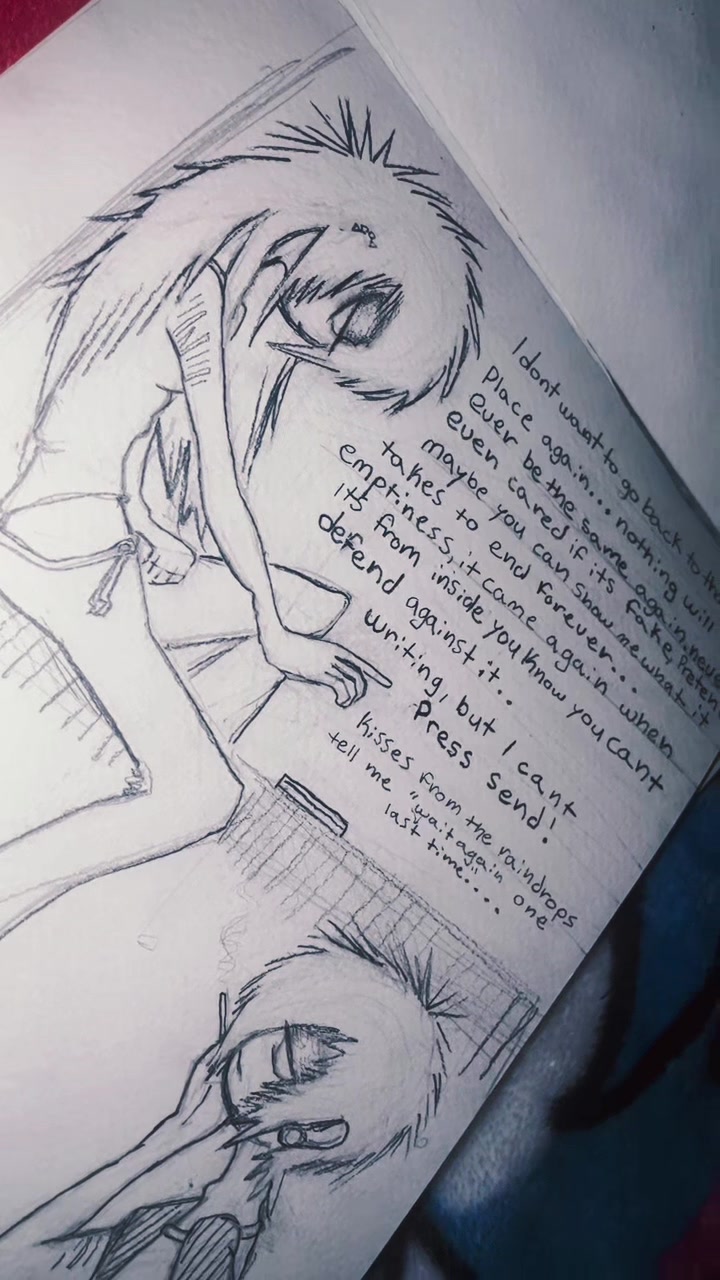 I dont want to go back to th
place again... nothing will
ever be the same again, neve
even cared if its fake, Preten
maybe you can show me what it
takes to end forever...
emptiness, it came again when
its from inside you know you cant
defend against it..
writing, but I cant
Press send!
kisses from the raindrops
tell me "wait again one
last time"....